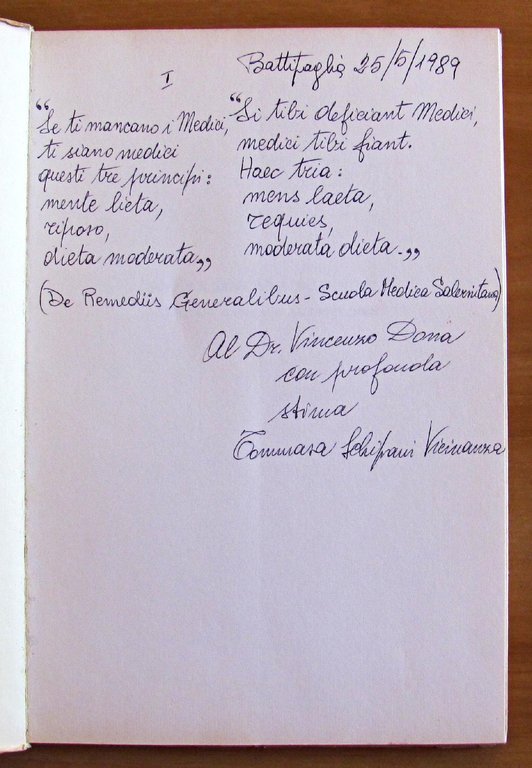 Battipaglia 25/5/1989
I
“Se ti mancano i Medici,
ti siano medici
questi tre principi:
mente lieta,
riposo,
dieta moderata„
“Si tibi deficiant Medici,
medici tibi fiant.
Haec tria:
mens laeta,
requies,
moderata dieta.„
(De Remediis Generalibus - Scuola Medica Salernitana)
Al Dr. Vincenzo Dona
con profonda
stima
Tommasa Schipani Vicinanza